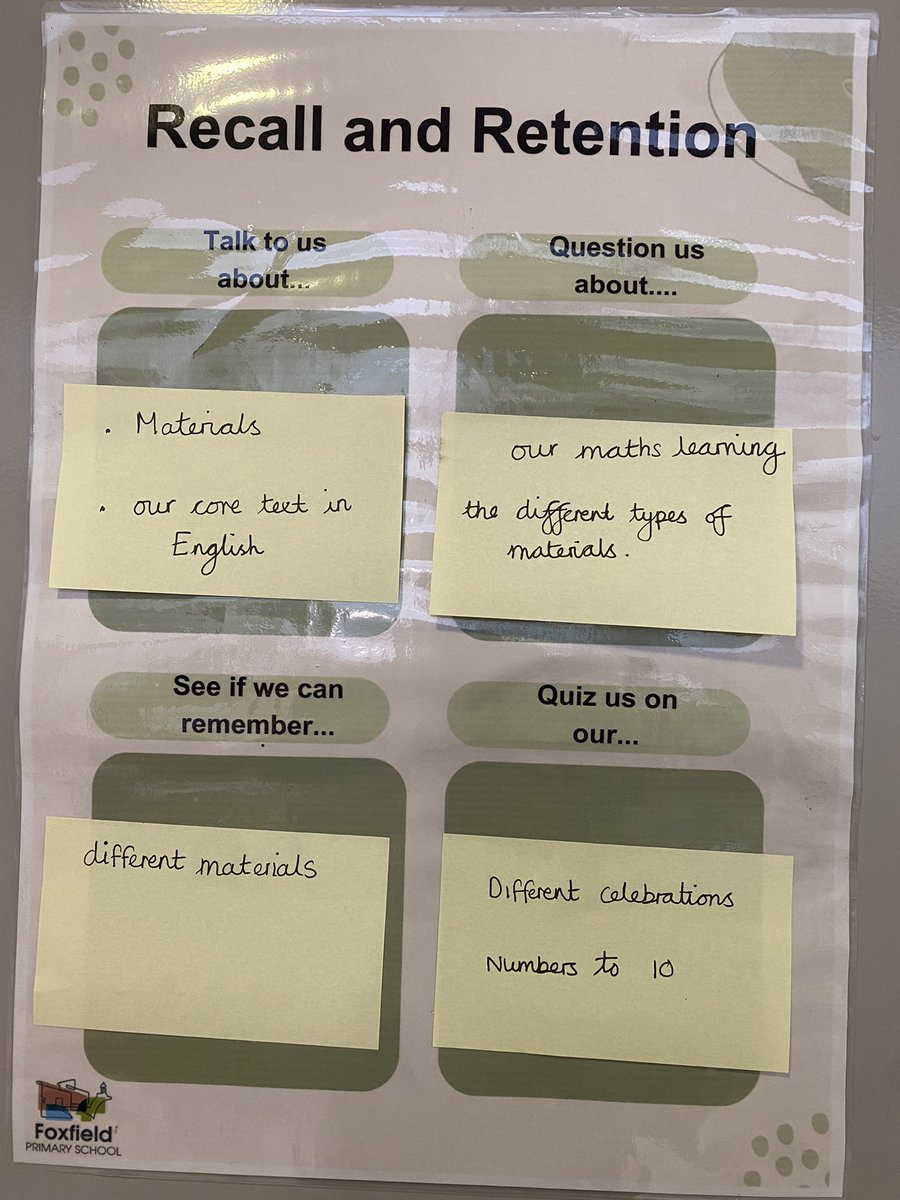 Recall and Retention
Talk to us
about...
. Materials
. our core text in
English
Question us
about....
our maths learning
the different types of
materials.
See if we can
remember...
different materials
Quiz us on
our...
Different celebrations
Numbers to 10
Foxfield
PRIMARY SCHOOL